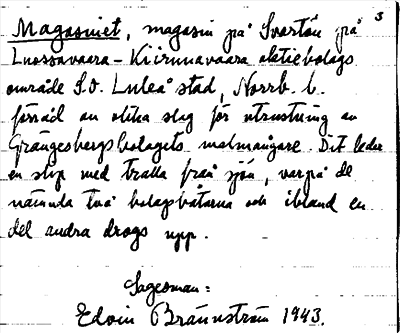 3
Magasinet, magasin på Svartön på
Luossavaara-Kiirunavaara aktiebolags
område S.O. Luleå stad, Norrb. l.
förråd av olika slag för utrustning av
Grängesbergsbolagets malmångare. Dit leder
en slip med tralla från sjön, varpå de
nämnda två bolagsbåtarna och ibland en
del andra drogs upp.
Sagesman:
Edvin Brännström 1943.